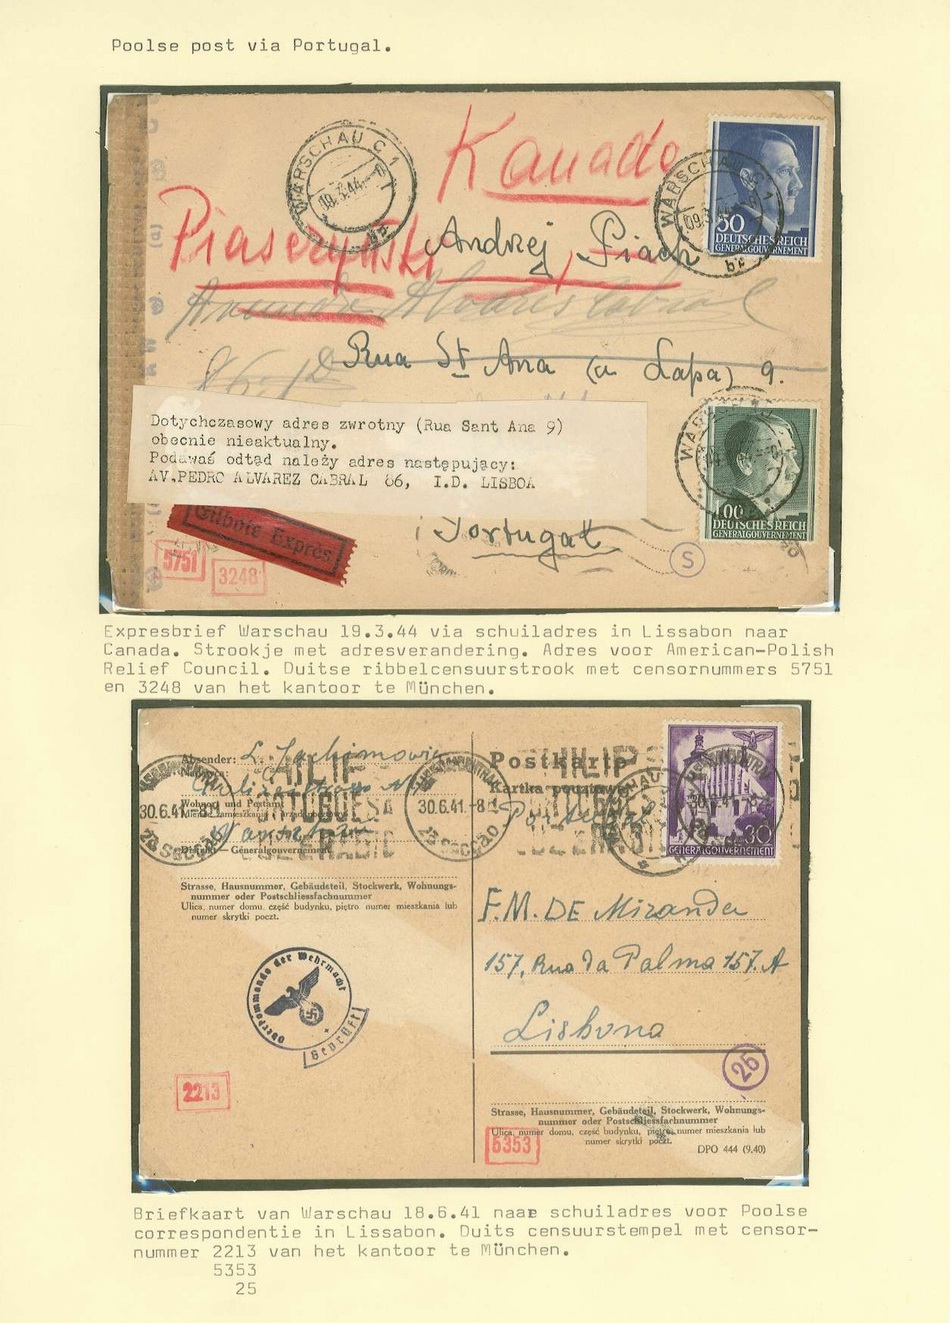 Poolse post via Portugal.
WARSCHAU C 1
Kanada
50
DEUTSCHES REICH
GENERALGOUVERNEMENT
Piaszyński
Andrzej Piach
Alvares Cabral
86. 1º
Rua St Ana (a Lapa) 9.
Dotychczasowy adres zwrotny (Rua Sant Ana 9)
obecnie nieaktualny.
Podawać odtąd należy adres następujący:
AV.PEDRO ALVAREZ CABRAL 86, I.D. LISBOA
1.00
DEUTSCHES REICH
GENERALGOUVERNEMENT
Eilbote Exprès
Portugal
S
5751
3248
Expresbrief Warschau 19.3.44 via schuiladres in Lissabon naar
Canada. Strookje met adresverandering. Adres voor American-Polish
Relief Council. Duitse ribbelcensuurstrook met censornummers 5751
en 3248 van het kantoor te München.
Absender:
Wohnort und Postamt
Distrikt — Generalgouvernement
30.6.41.-8
2a Secção
30.6.41.-8
2a Secção
Strasse, Hausnummer, Gebäudeteil, Stockwerk, Wohnungs-
nummer oder Postschliessfachnummer
Ulica, numer domu, część budynku, piętro numer mieszkania lub
numer skrytki poczt.
Oberkommando der Wehrmacht
Geprüft
2213
Postkarte
Kartka pocztowa
30
GENERALGOUVERNEMENT
F.M. DE Miranda
157, Rua da Palma 157. A
Lisbona
25
Strasse, Hausnummer, Gebäudeteil, Stockwerk, Wohnungs-
nummer oder Postschliessfachnummer
Ulica, numer domu, część budynku, piętro numer mieszkania lub
numer skrytki poczt.
5353
DPO 444 (9.40)
Briefkaart van Warschau 18.6.41 naar schuiladres voor Poolse
correspondentie in Lissabon. Duits censuurstempel met censor-
nummer 2213 van het kantoor te München.
5353
25